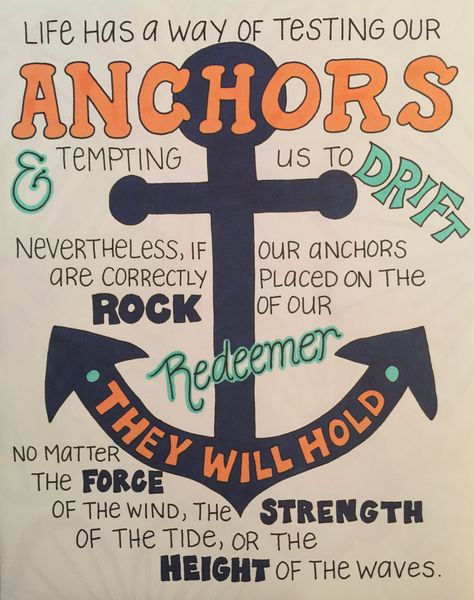 LIFE HAS A WAY OF TESTING OUR
ANCHORS
& TEMPTING US TO DRIFT
NEVERTHELESS, IF OUR ANCHORS
ARE CORRECTLY PLACED ON THE
ROCK OF OUR
Redeemer
THEY WILL HOLD
NO MATTER
THE FORCE
OF THE WIND, THE STRENGTH
OF THE TIDE, OR THE
HEIGHT OF THE WAVES.